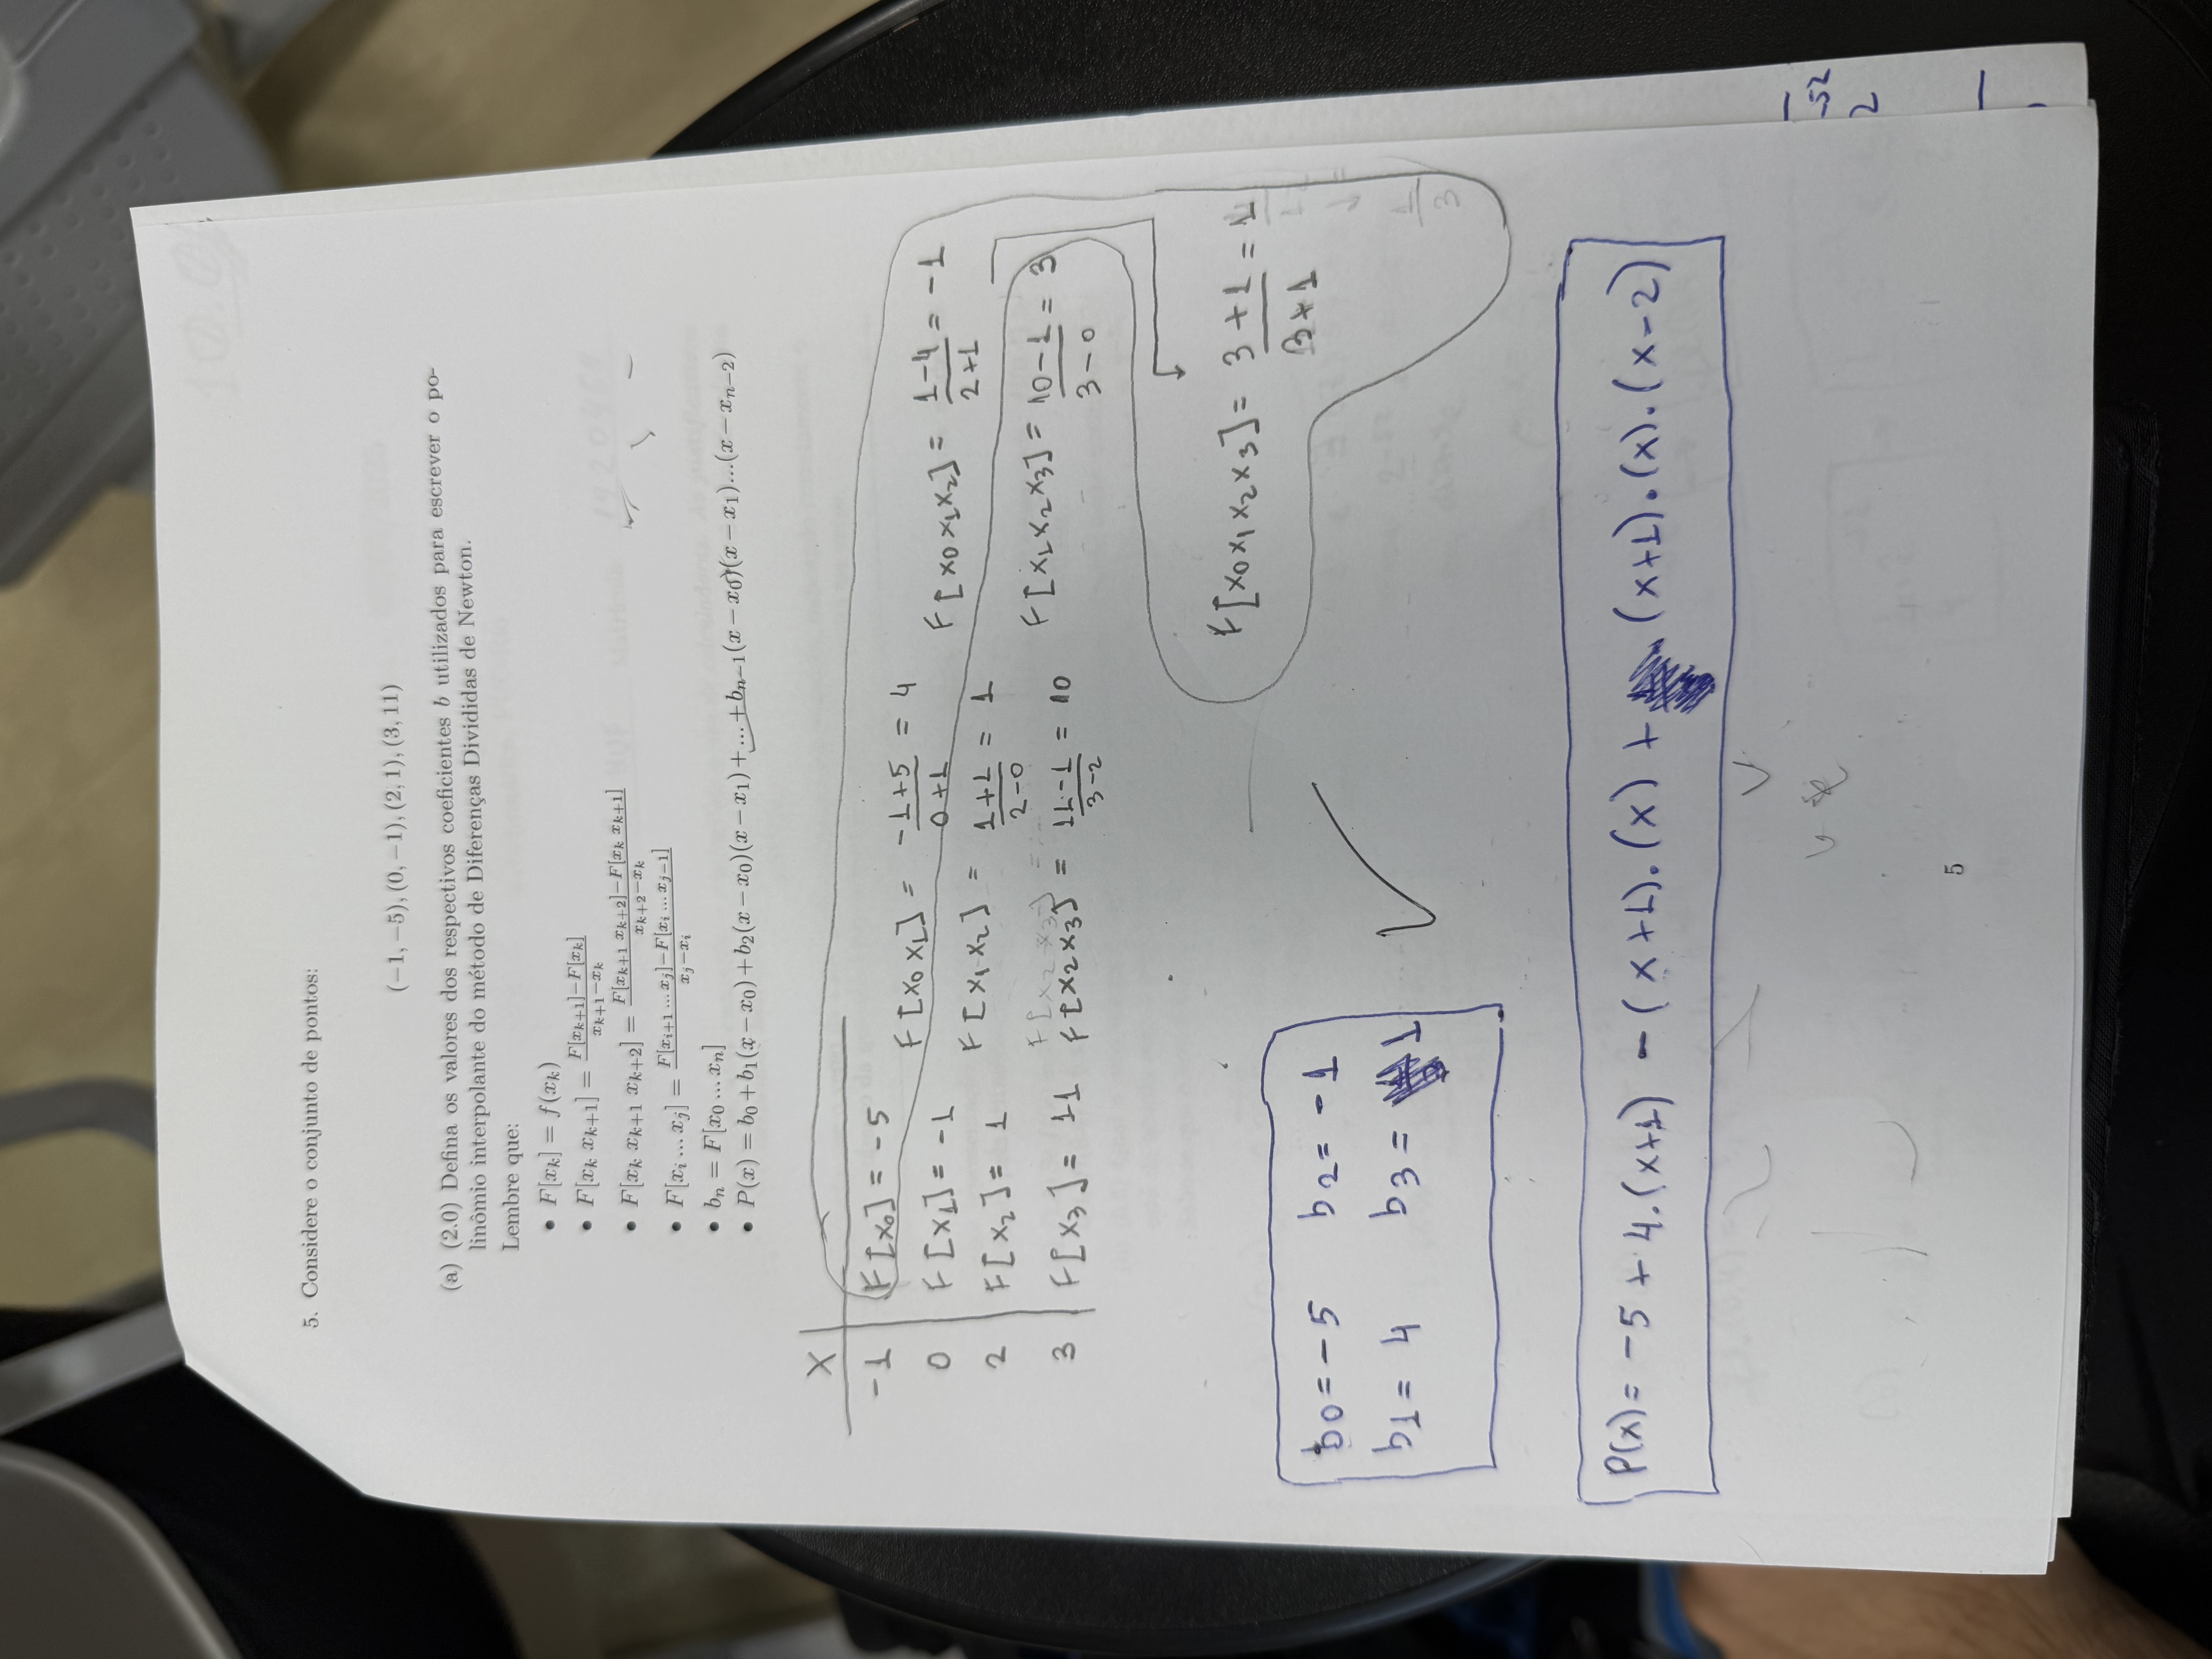 5. Considere o conjunto de pontos:
(−1, −5), (0, −1), (2, 1), (3, 11)
(a) (2.0) Defina os valores dos respectivos coeficientes b utilizados para escrever o po-
linômio interpolante do método de Diferenças Divididas de Newton.
Lembre que:
• F[x_k] = f(x_k)
• F[x_k x_{k+1}] = \frac{F[x_{k+1}]−F[x_k]}{x_{k+1}−x_k}
• F[x_k x_{k+1} x_{k+2}] = \frac{F[x_{k+1} x_{k+2}]−F[x_k x_{k+1}]}{x_{k+2}−x_k}
• F[x_i ... x_j] = \frac{F[x_{i+1} ... x_j]−F[x_i ... x_{j−1}]}{x_j−x_i}
• b_n = F[x_0 ... x_n]
• P(x) = b_0 + b_1(x − x_0) + b_2(x − x_0)(x − x_1) + ... + b_{n−1}(x − x_0)(x − x_1)...(x − x_{n−2})
X
-1 F[x_0] = -5 F[x_0 x_1] = \frac{-1+5}{0+1} = 4 F[x_0 x_1 x_2] = \frac{1-4}{2+1} = -1
0 F[x_1] = -1 F[x_1 x_2] = \frac{1+1}{2-0} = 1
2 F[x_2] = 1 F[x_1 x_2 x_3] = \frac{10-1}{3-0} = 3
3 F[x_3] = 11 F[x_2 x_3] = \frac{11-1}{3-2} = 10
F[x_0 x_1 x_2 x_3] = \frac{3+1}{3+1} = 1
b_0 = -5 b_2 = -1
b_1 = 4 b_3 = 1
P(x) = -5 + 4.(x+1) - (x+1).(x) + (x+1).(x).(x-2)
5
-52
2